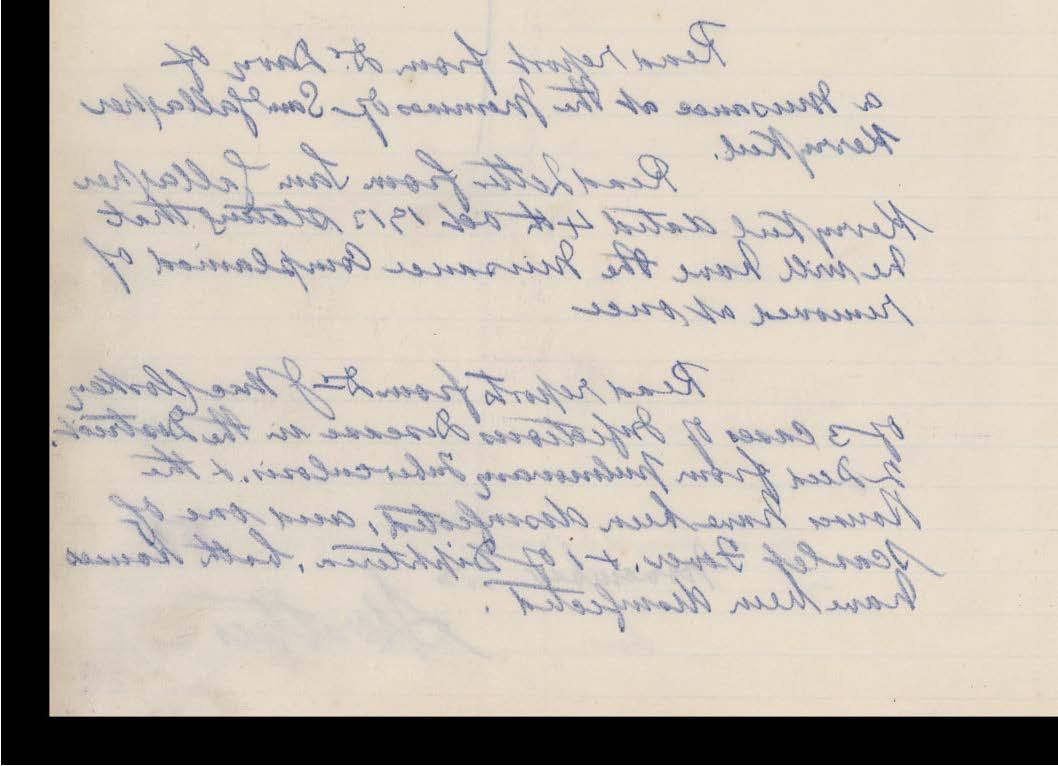 Read report from Dr. Davy of
a nuisance at the premises of Sam Gallagher
Kerrykeel.
Read Letter from Sam Gallagher
Kerrykeel dated 4th Oct 1913 stating that
he will have the nuisance complained of
removed at once
Read reports from Dr J MacCloskey
of 3 cases of Infectious Disease in the District.
2 Died from Pulmonary Tuberculosis. & the
Houses have been disinfected, and one of
Scarlet Fever. & 1 of Diphteria, both houses
have been disinfected.